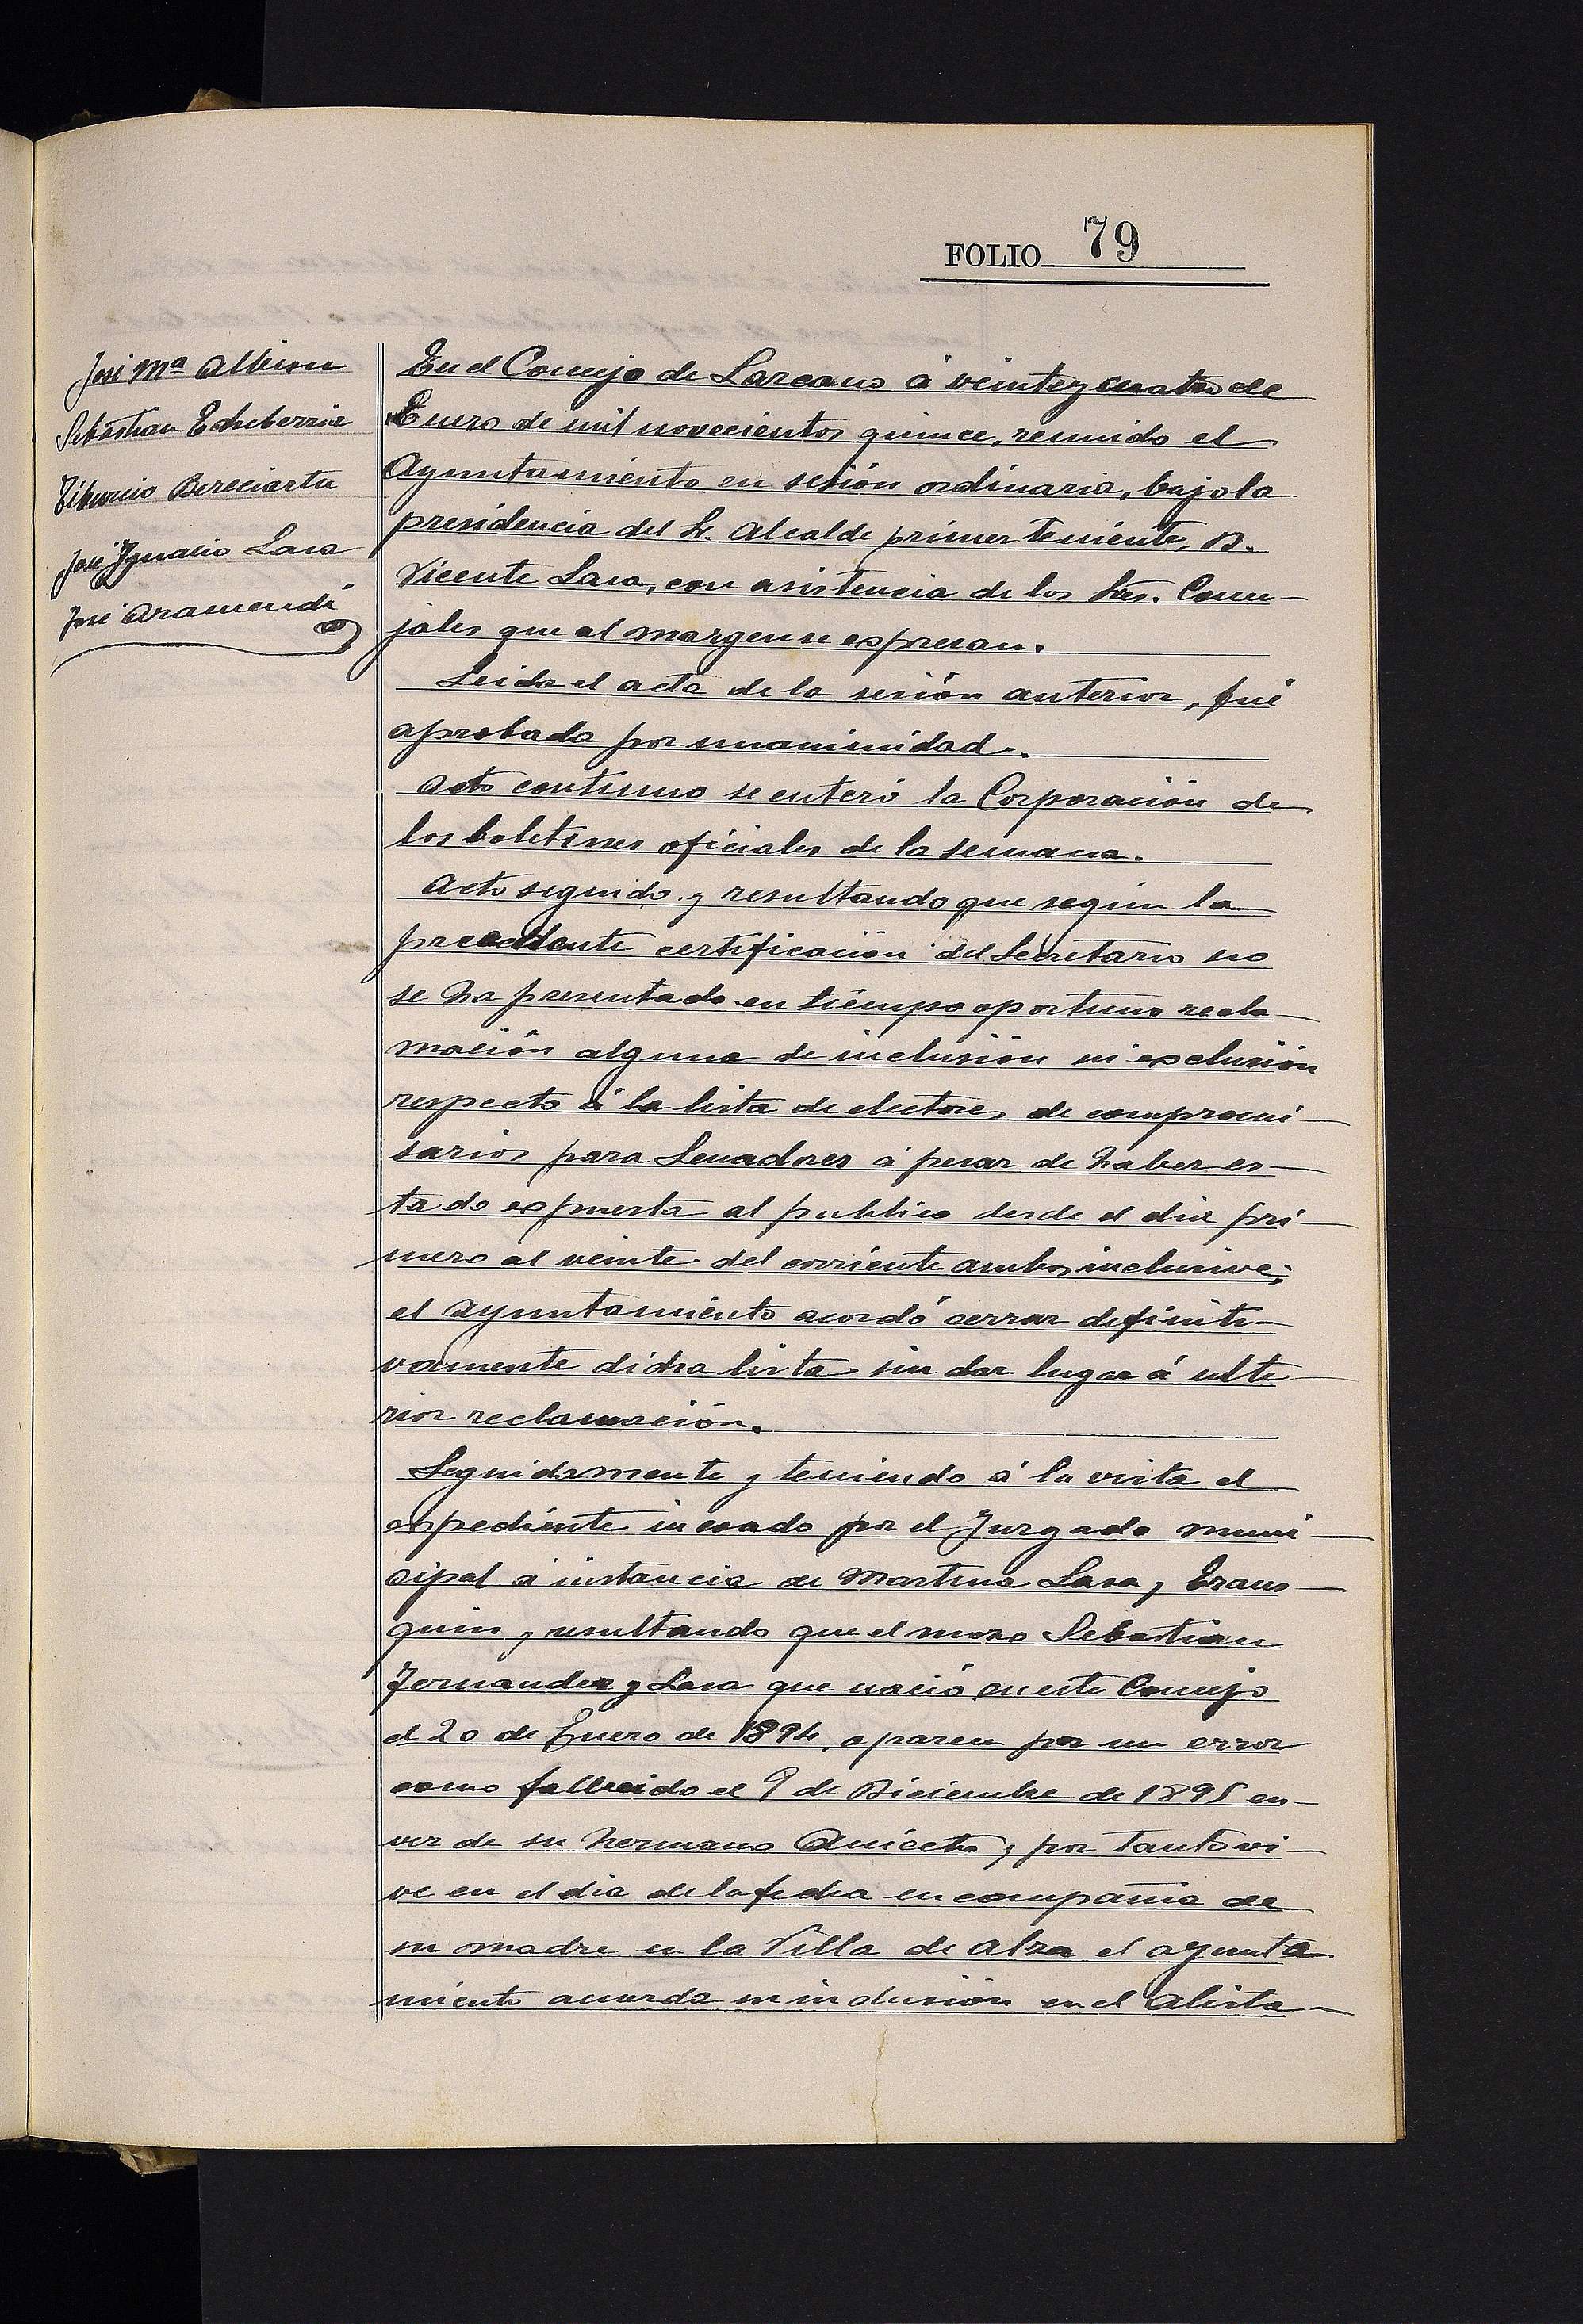 FOLIO 79
José Mª Albisu
Sebastian Echeberria
Tiburcio Bereciartu
José Ygnacio Lasa
José Aramendi
En el Concejo de Lazcano á veinte y cuatro de
Enero de mil novecientos quince, reunido el
Ayuntamiento en sesión ordinaria, bajo la
presidencia del Sr. Alcalde primer teniente, D.
Vicente Lasa, con asistencia de los Sres. Conce-
jales que al margen se espresan.
Leida el acta de la sesión anterior, fué
aprobada por unanimidad.
Acto continuo se enteró la Corporación de
los boletines oficiales de la semana.
Acto seguido y resultando que según la
precedente certificación del Secretario no
se ha presentado en tiempo oportuno recla-
mación alguna de inclusión ni exclusión
respecto á la lista de electores de compromi-
sarios para Senadores á pesar de haber es-
tado expuesta al publico desde el dia pri-
mero al veinte del corriente ambos inclusive;
el Ayuntamiento acordó cerrar definiti-
vamente dicha lista sin dar lugar á ulte-
rior reclamación.
Seguidamente y teniendo á la vista el
expediente incoado por el Juzgado muni-
cipal á instancia de Martina Lasa y Eraus-
quin y resultando que el mozo Sebastian
Fernandez y Lasa que nació en este Concejo
el 20 de Enero de 1894, aparece por un error
como fallecido el 9 de Diciembre de 1895 en
vez de su hermano Aniceto y por tanto vi-
ve en el dia de la fecha en compañia de
su madre en la Villa de Alza el ayunta
miento acuerda su inclusión en el alista-